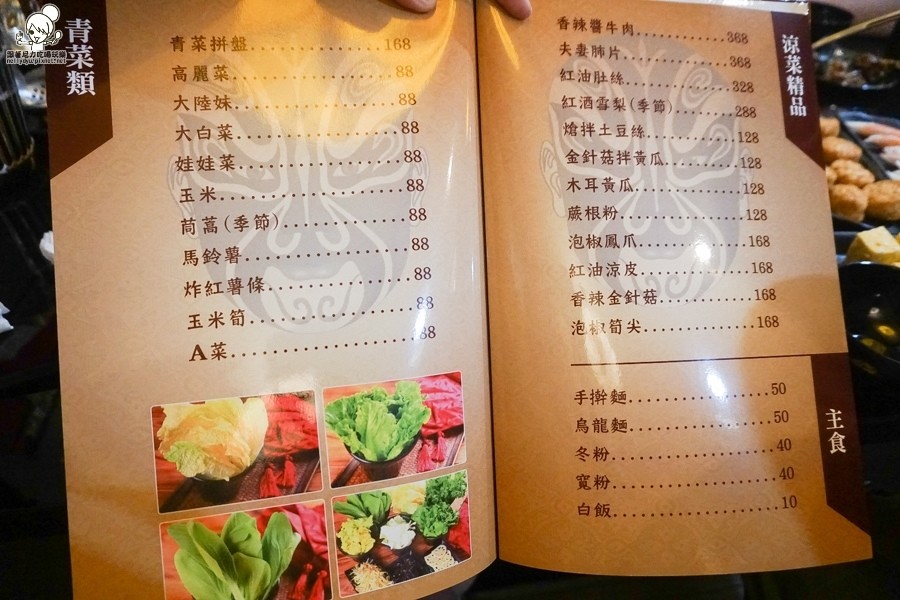 跟著尼力吃喝玩樂
nellydyu.pixnet.net
青菜類
青菜拼盤............168
高麗菜............88
大陸妹............88
大白菜............88
娃娃菜............88
玉米............88
茼蒿(季節)............88
馬鈴薯............88
炸紅薯條............88
玉米筍............88
A菜............88
涼菜精品
香辣醬牛肉............368
夫妻肺片............368
紅油肚絲............328
紅酒雪梨(季節)............288
熗拌土豆絲............128
金針菇拌黃瓜............128
木耳黃瓜............128
蕨根粉............128
泡椒鳳爪............168
紅油涼皮............168
香辣金針菇............168
泡椒筍尖............168
主食
手擀麵............50
烏龍麵............50
冬粉............40
寬粉............40
白飯............10